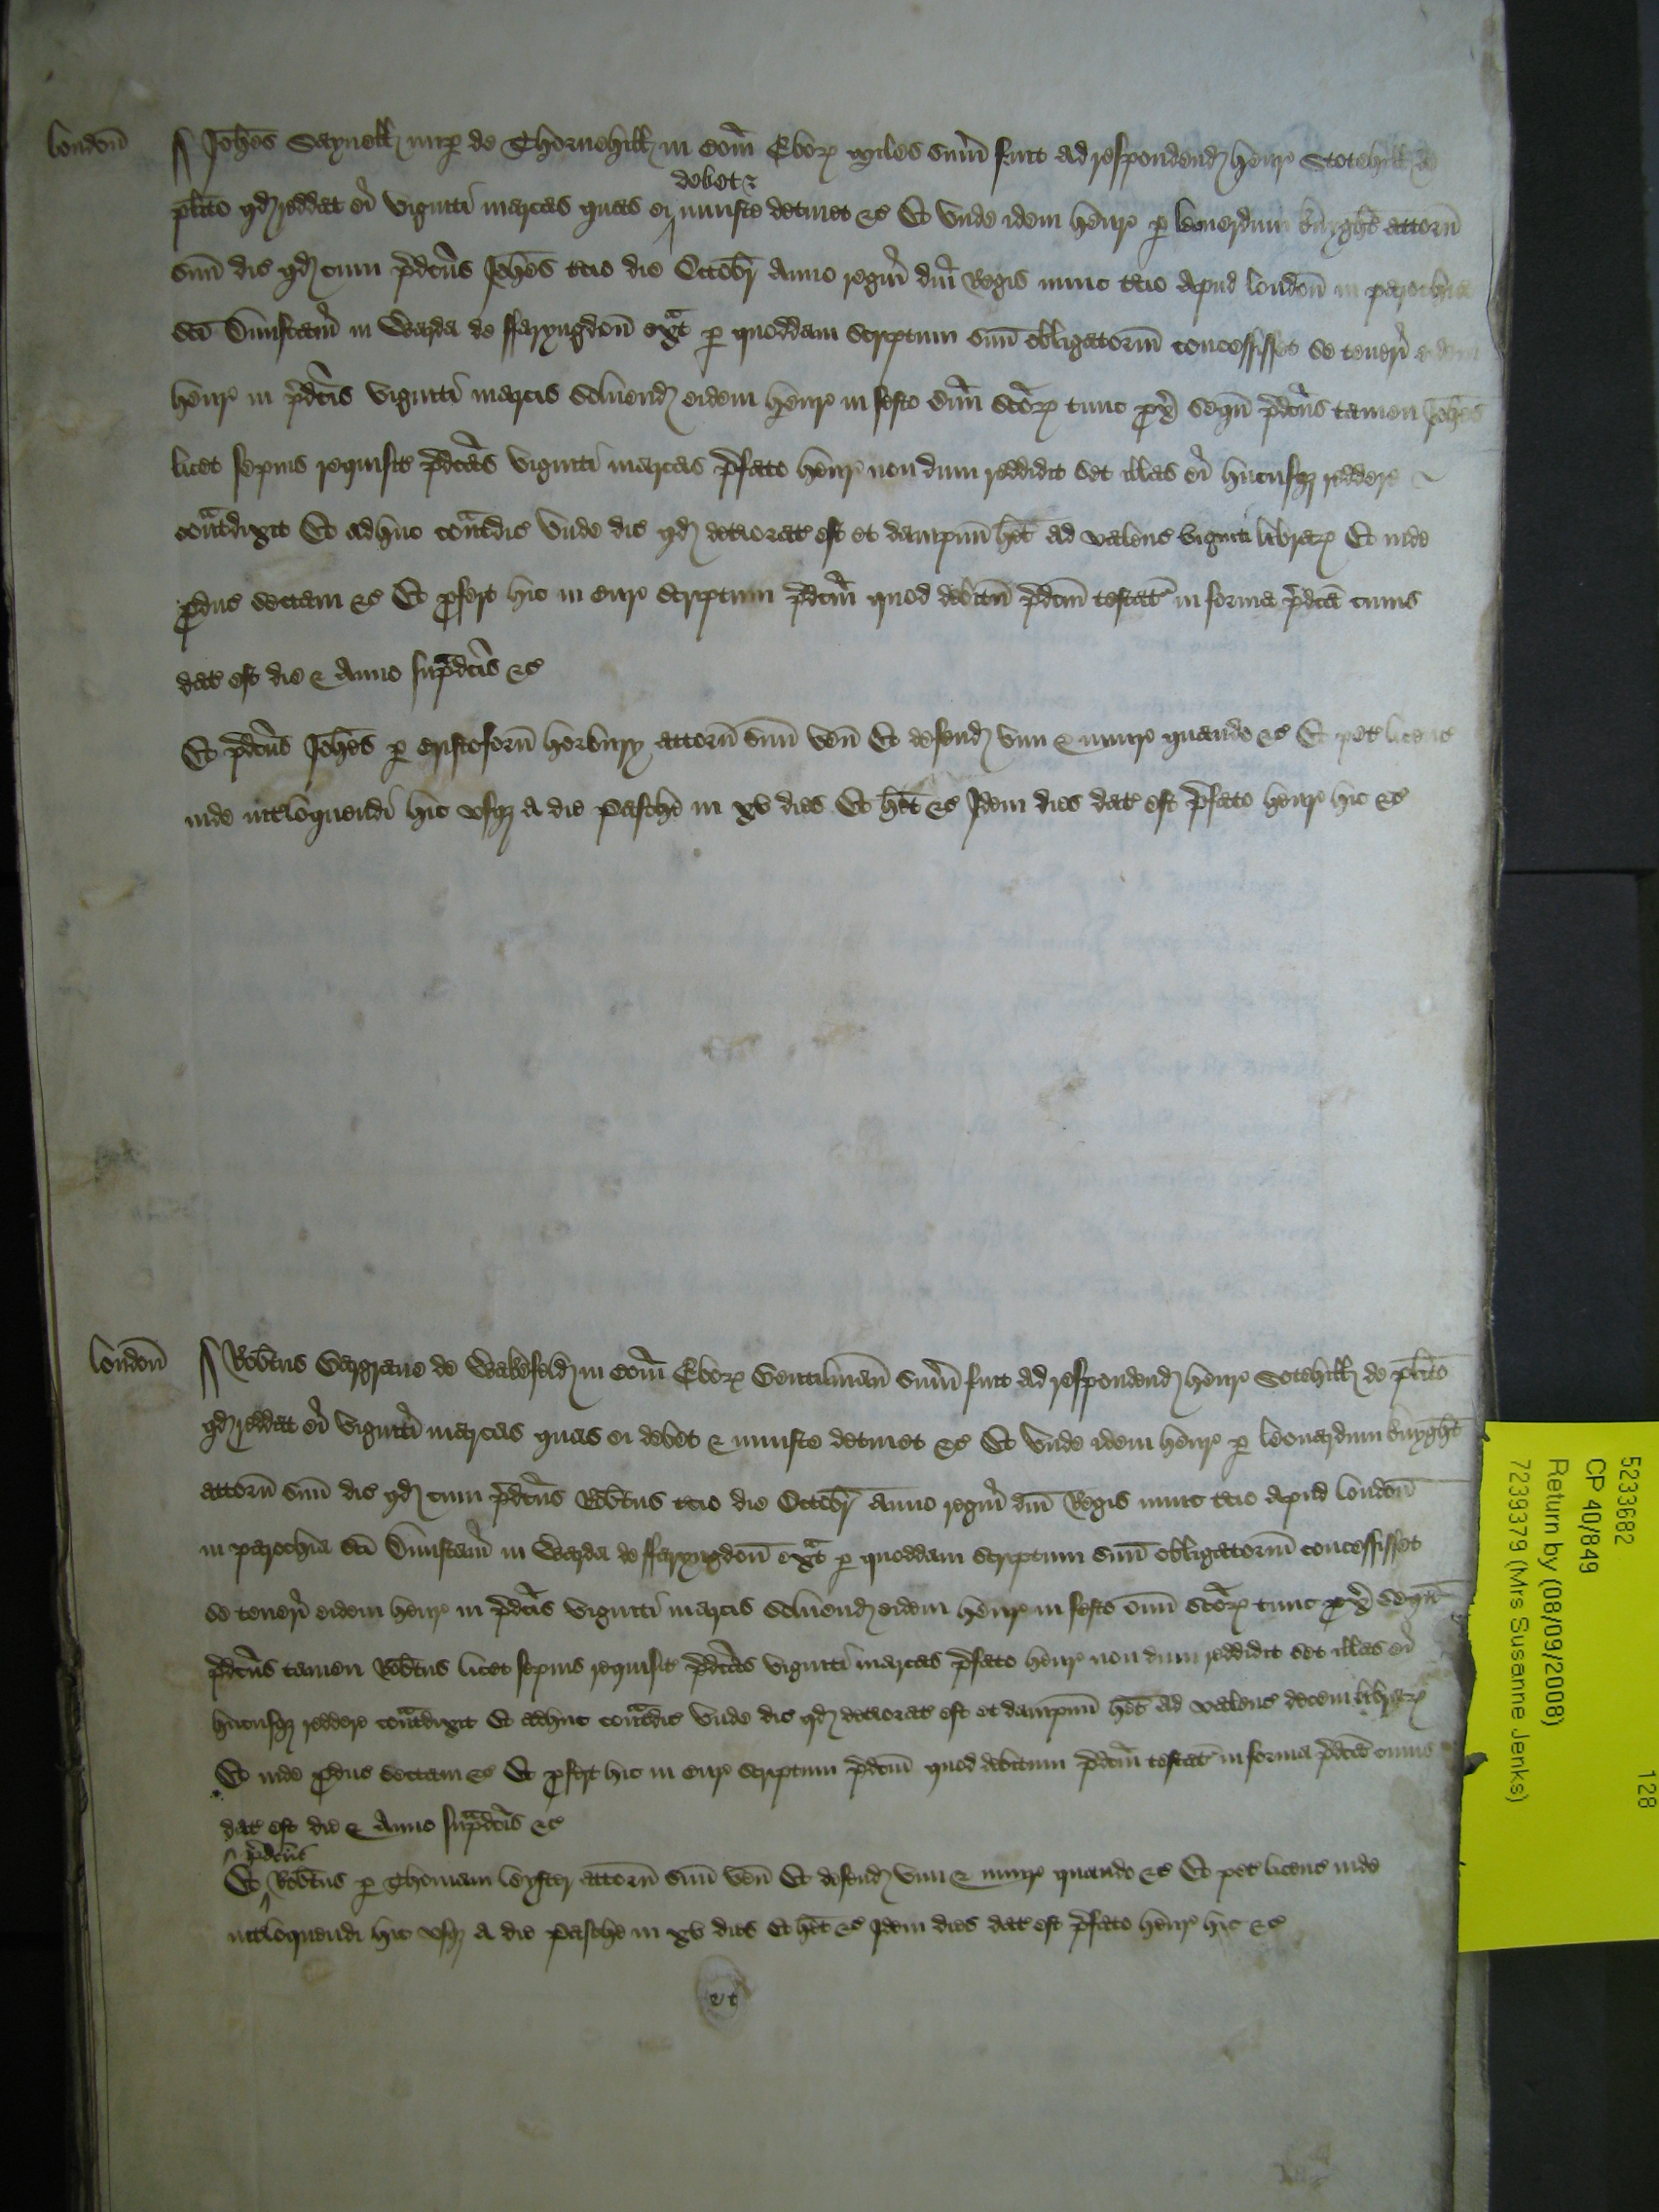 londoñ Joh̃es Sayuell nup de Thornehill in Com̃ Ebor miles sum̃ fuit ad respondend henr Sotehill de
debet &
pl̃ito qd reddat ei viginti marcas quas ei iniuste detinet &c Et unde idem henr p leonerdum knyght attorñ
suũ dic qd cum p̃dc̃us Joh̃es t̃cio die Octobr Anno regni dñi Regis nunc t̃cio apud londoñ in parochia
sc̃i Dunstani in Warda de ffaryngdoñ ext̃ p quoddam scriptum suũ obligatoriũ concessisset se teneri eidem
henr in p̃dc̃is viginti marcis soluend eidem henr in festo om̃ sc̃or tunc px̃ seqũ p̃dc̃us tamen Joh̃es
licet sepius requisit p̃dc̃as viginti marcas p̃fato henr non dum reddidit set illas ei hucusq reddere
cont̃dixit Et adhuc cont̃dic unde dic qd deteriorat est et dampnũ h̃et ad valenc viginti librar Et inde
pduc sectam &c Et pfert hic in cur scriptum p̃dc̃m quod debitũ p̃dc̃m testat̃ in forma p̃dc̃a cuius
dat est die & Anno sup̃dc̃is &c
Et p̃dc̃us Joh̃es p cristoforũ horbury attorñ suũ veñ Et defend vim & iniur quando &c Et pet licenc
inde int̃loquendi hic usq a die Pasche in xv dies Et h̃et &c Idem dies dat est p̃fato henr hic &c
londoñ Rob̃tus Wargraue de Wakefeld in Com̃ Ebor Gentilmañ sum̃ fuit ad respondend henr Sotehill de pl̃ito
qd reddat ei viginti marcas quas ei debet & iniuste detinet &c Et unde idem henr p leonardum knyght
attorñ suũ dic qd cum p̃dc̃us Rob̃tus t̃cio die Octobr Anno regni dñi Regis nunc t̃cio apud londoñ
in parochia sc̃i Dunstani in Warda de ffaryngdoñ ext̃ p quoddam scriptum suũ obligatoriũ concessisset
se teneri eidem henr in p̃dc̃is viginti marcis soluend eidem henr in festo om̃ sc̃or tunc px̃ seqũ
p̃dc̃us tamen Rob̃tus licet sepius requisit p̃dc̃as viginti marcas p̃fato henr non dum reddidit set illas ei
hucusq reddere cont̃dixit Et adhuc cont̃dic unde dic qd deteriorat est et dampnũ h̃et ad valenc decem librar
Et inde pduc sectam &c Et pfert hic in cur scriptum p̃dc̃m quod debitum p̃dc̃m testat̃ in forma p̃dc̃a cuius
dat est die & Anno sup̃dc̃is &c
p̃dc̃us
Et Rob̃tus p Thomam attorñ suũ veñ Et defend vim & iniur quando &c Et pet licenc inde
int̃loquendi hic usq a die Pasche in xv dies Et h̃et &c Idem dies dat est p̃fato henr hic &c
5233682 128
CP 40/849
Return by (08/09/2008)
7239379 (Mrs Susanne Jenks)